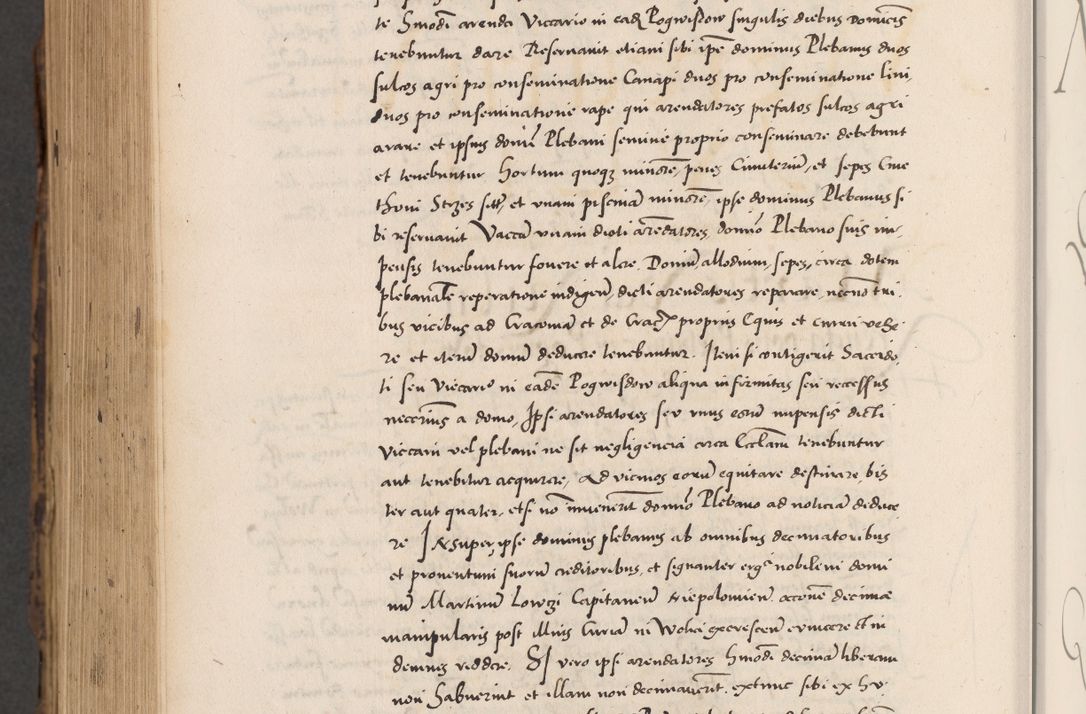 te hmodi arenda Viccario in eadem Pogwisdow singulis diebus Dominicis
tenebuntur dare Reservavit etiam sibi ipse dominus Plebanus duos
sulcos agri pro conseminatione Canapi duos pro conseminatione lini,
duos pro conseminatione rape qui arendatores prefatos sulcos agri
arare et ipsius domini Plebani semine proprio conseminare debebunt
et tenebuntur hortum quoque minorem, penes Cimiterium, et sepes
thoni sitam, et unam piscinam minorem, ipse dominus Plebanus si
bi reservavit Vaccam unam dicti arendatores, domino Plebano suis im
pensis tenebuntur fovere et alere. Domum, allodium, sepes, circa dotem
plebanalem reperatione indigentem, dicti arendatores reparare, necnon tri
bus vicibus ad Cracoviam et de Cracovia propriis Equis et curru vehe
re et iterum domum deducere tenebuntur. Item si contigerit Sacerdo
ti seu Viccario in eadem Pogwisdow aliqua infirmitas seu recessus
necessarius a domo, Ipsi arendatores seu unus eorum impensis dicti
viccarii vel plebani ne sit negligencia circa Ecclesiam tenebuntur
aut tenebitur acquirere, Ad vicinos eorum equitare destinare, bis
ter aut quater, et si non invenerit domino Plebano ad noticiam deduce
re Insuper, ipse dominus plebanus ab omnibus decimatoribus
et proventuum suorum creditoribus, et signanter erga nobilem domi
num Martinum Lowczi Capitaneum Niepolomicensem accionem decimae
manipularis post illius Curiam in excrescentem evincere et in
demnis reddere. Si vero ipsi arendatores hmodi decimam liberam
non habuerint et illam non decimaverint, extunc sibi ex hu